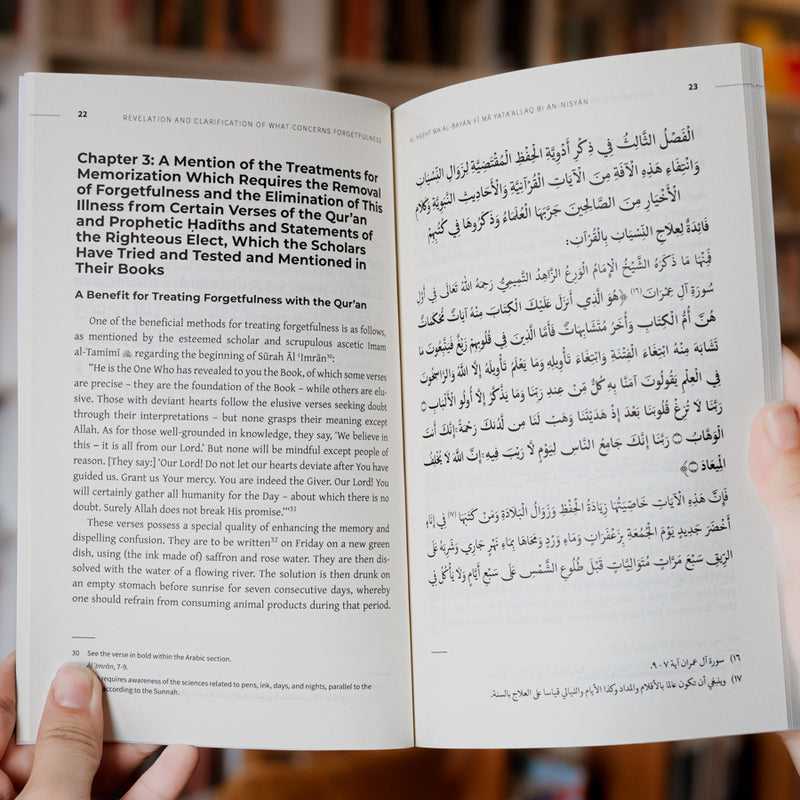 22
REVELATION AND CLARIFICATION OF WHAT CONCERNS FORGETFULNESS
Chapter 3: A Mention of the Treatments for
Memorization Which Requires the Removal
of Forgetfulness and the Elimination of This
Illness from Certain Verses of the Qur’an
and Prophetic Ḥadīths and Statements of
the Righteous Elect, Which the Scholars
Have Tried and Tested and Mentioned in
Their Books
A Benefit for Treating Forgetfulness with the Qur’an
One of the beneficial methods for treating forgetfulness is as follows,
as mentioned by the esteemed scholar and scrupulous ascetic Imam
al-Tamīmī regarding the beginning of Sūrah Āl ‘Imrān³⁰:
“He is the One Who has revealed to you the Book, of which some verses
are precise – they are the foundation of the Book – while others are elu-
sive. Those with deviant hearts follow the elusive verses seeking doubt
through their interpretations – but none grasps their meaning except
Allah. As for those well-grounded in knowledge, they say, ‘We believe in
this – it is all from our Lord.’ But none will be mindful except people of
reason. [They say:] ‘Our Lord! Do not let our hearts deviate after You have
guided us. Grant us Your mercy. You are indeed the Giver. Our Lord! You
will certainly gather all humanity for the Day – about which there is no
doubt. Surely Allah does not break His promise.’”³¹
These verses possess a special quality of enhancing the memory and
dispelling confusion. They are to be written³² on Friday on a new green
dish, using (the ink made of) saffron and rose water. They are then dis-
solved with the water of a flowing river. The solution is then drunk on
an empty stomach before sunrise for seven consecutive days, whereby
one should refrain from consuming animal products during that period.
30 See the verse in bold within the Arabic section.
Āl ‘Imrān, 7-9.
requires awareness of the sciences related to pens, ink, days, and nights, parallel to the
according to the Sunnah.
23
AL-KASHF WA AL-BAYĀN FĪ MĀ YATA‘ALLAQ BI AN-NISYĀN
الْفَصْلُ الثَّالِثُ فِي ذِكْرِ أَدْوِيَةِ الْحِفْظِ الْمُقْتَضِيَةِ لِزَوَالِ النِّسْيَانِ
وَانْتِفَاءِ هَذِهِ الْآفَةِ مِنَ الْآيَاتِ الْقُرْآنِيَّةِ وَالْأَحَادِيثِ النَّبَوِيَّةِ وَكَلَامِ
الْأَخْيَارِ مِنَ الصَّالِحِينَ جَرَّبَهَا الْعُلَمَاءُ وَذَكَرُوهَا فِي كُتُبِهِمْ
فَائِدَةٌ لِعِلَاجِ النِّسْيَانِ بِالْقُرْآنِ:
فَمِنْهَا مَا ذَكَرَهُ الشَّيْخُ الْإِمَامُ الْوَرِعُ الزَّاهِدُ التَّمِيمِيُّ رَحِمَهُ اللهُ تَعَالَى فِي أَوَّلِ
سُورَةِ آلِ عِمْرَانَ (١٦) ﴿هُوَ الَّذِي أَنزَلَ عَلَيْكَ الْكِتَابَ مِنْهُ آيَاتٌ مُّحْكَمَاتٌ
هُنَّ أُمُّ الْكِتَابِ وَأُخَرُ مُتَشَابِهَاتٌ فَأَمَّا الَّذِينَ فِي قُلُوبِهِمْ زَيْغٌ فَيَتَّبِعُونَ مَا
تَشَابَهَ مِنْهُ ابْتِغَاءَ الْفِتْنَةِ وَابْتِغَاءَ تَأْوِيلِهِ وَمَا يَعْلَمُ تَأْوِيلَهُ إِلَّا اللهُ وَالرَّاسِخُونَ
فِي الْعِلْمِ يَقُولُونَ آمَنَّا بِهِ كُلٌّ مِّنْ عِندِ رَبِّنَا وَمَا يَذَّكَّرُ إِلَّا أُولُو الْأَلْبَابِ
رَبَّنَا لَا تُزِغْ قُلُوبَنَا بَعْدَ إِذْ هَدَيْتَنَا وَهَبْ لَنَا مِن لَّدُنكَ رَحْمَةً إِنَّكَ أَنتَ
الْوَهَّابُ رَبَّنَا إِنَّكَ جَامِعُ النَّاسِ لِيَوْمٍ لَّا رَيْبَ فِيهِ إِنَّ اللهَ لَا يُخْلِفُ
الْمِيعَادَ﴾
فَإِنَّ هَذِهِ الْآيَاتِ خَاصِّيَّتُهَا زِيَادَةُ الْحِفْظِ وَزَوَالُ الْبَلَادَةِ وَمَنْ كَتَبَهَا (١٧) فِي إِنَاءٍ
أَخْضَرَ جَدِيدٍ يَوْمَ الْجُمُعَةِ بِزَعْفَرَانٍ وَمَاءِ وَرْدٍ وَمَحَاهَا بِمَاءِ نَهْرٍ جَارِي وَشَرِبَهُ عَلَى
الرِّيقِ سَبْعَ مَرَّاتٍ مُتَوَالِيَاتٍ قَبْلَ طُلُوعِ الشَّمْسِ عَلَى سَبْعِ أَيَّامٍ وَلَا يَأْكُلُ فِي
(١٦) سورة آل عمران آية ٧ - ٩.
(١٧) وينبغي أن تكون عالما بالأقلام والمداد وكذا الأيام والليالي قياسا على العلاج بالسنة.